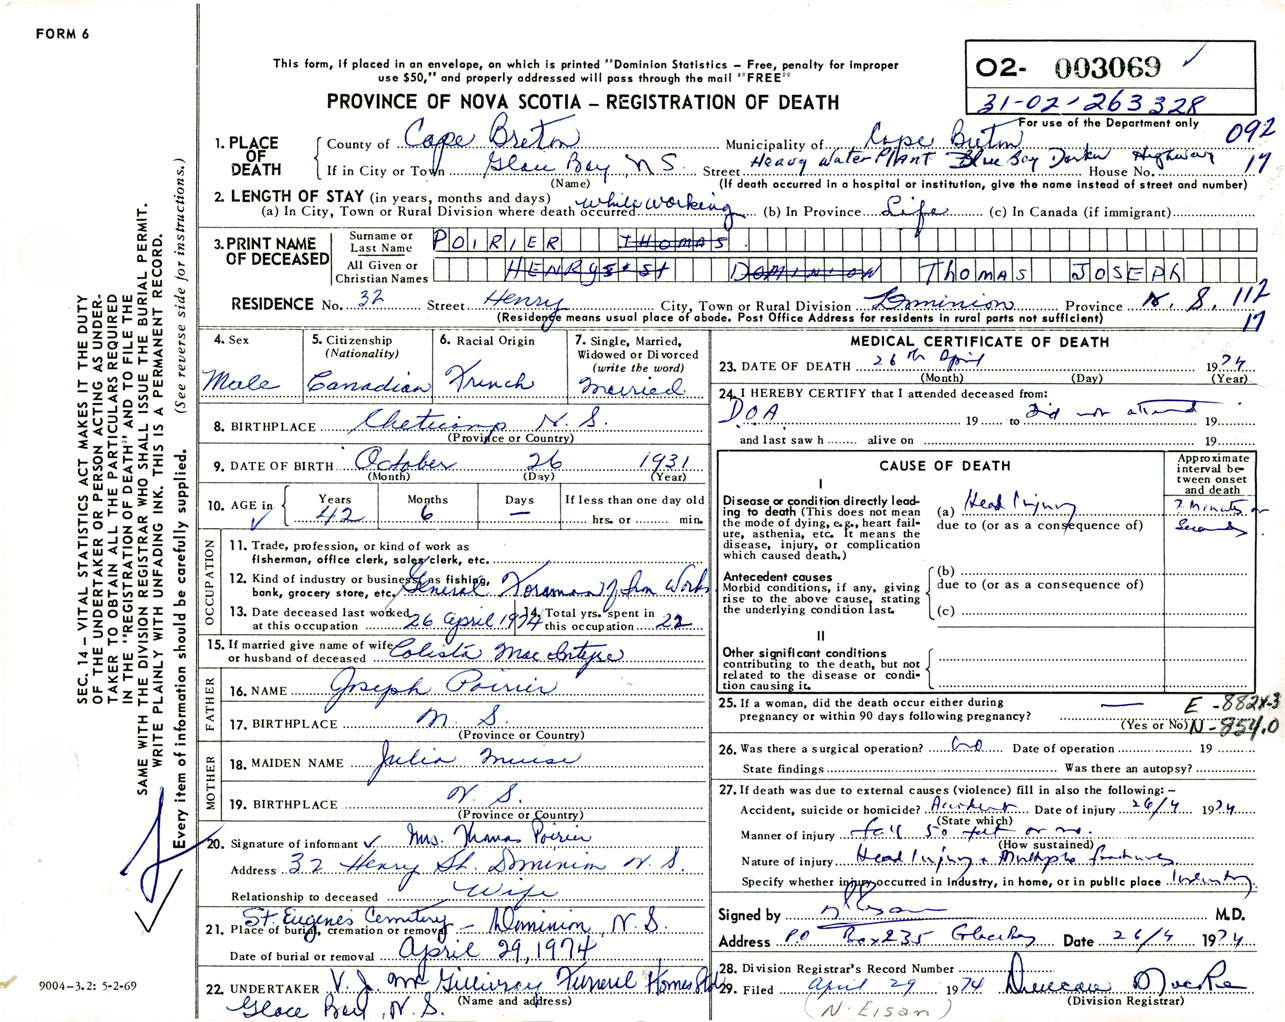 FORM 6
This form, if placed in an envelope, on which is printed "Dominion Statistics – Free, penalty for improper
use $50," and properly addressed will pass through the mail "FREE"
PROVINCE OF NOVA SCOTIA – REGISTRATION OF DEATH
O2- 003069
31-02-263328
For use of the Department only
092
17
1. PLACE OF DEATH
County of Cape Breton Municipality of Cape Breton
If in City or Town Glace Bay, N.S. Street Heavy Water Plant Highway House No.
(Name) (If death occurred in a hospital or institution, give the name instead of street and number)
2. LENGTH OF STAY (in years, months and days)
(a) In City, Town or Rural Division where death occurred while working (b) In Province Life (c) In Canada (if immigrant)
3. PRINT NAME OF DECEASED
Surname or Last Name POIRIER THOMAS
All Given or Christian Names HENRY ST DOMINION THOMAS JOSEPH
RESIDENCE No. 32 Street Henry City, Town or Rural Division Dominion Province N.S. 112
17
(Residence means usual place of abode. Post Office Address for residents in rural parts not sufficient)
4. Sex
Male
5. Citizenship
(Nationality)
Canadian
6. Racial Origin
French
7. Single, Married,
Widowed or Divorced
(write the word)
Married
8. BIRTHPLACE Cheticamp N.S.
(Province or Country)
9. DATE OF BIRTH October 26 1931
(Month) (Day) (Year)
10. AGE in
Years Months Days If less than one day old
42 6 — hrs. or min.
OCCUPATION
11. Trade, profession, or kind of work as
fisherman, office clerk, sales clerk, etc.
12. Kind of industry or business, as fishing,
bank, grocery store, etc. General Foreman of Iron Work
13. Date deceased last worked
at this occupation 26 April 1974
14. Total yrs. spent in
this occupation 22
15. If married give name of wife
or husband of deceased Calista MacIntyre
FATHER
16. NAME Joseph Poirier
17. BIRTHPLACE N.S.
(Province or Country)
MOTHER
18. MAIDEN NAME Julia Muise
19. BIRTHPLACE N.S.
(Province or Country)
20. Signature of informant Mrs. Thomas Poirier
Address 32 Henry St. Dominion N.S.
Relationship to deceased Wife
21. Place of burial, cremation or removal St. Eugene's Cemetery – Dominion, N.S.
Date of burial or removal April 29, 1974
22. UNDERTAKER V.J. McGillivray Funeral Homes Ltd
(Name and address)
Glace Bay, N.S.
MEDICAL CERTIFICATE OF DEATH
23. DATE OF DEATH 26th April 1974
(Month) (Day) (Year)
24. I HEREBY CERTIFY that I attended deceased from:
DOA 19 to Did not attend 19
and last saw h alive on 19
CAUSE OF DEATH
Approximate
interval be-
tween onset
and death
I
Disease or condition directly lead-
ing to death (This does not mean
the mode of dying, e.g., heart fail-
ure, asthenia, etc. It means the
disease, injury, or complication
which caused death.)
(a) Head Injury
due to (or as a consequence of)
? Minutes or
Seconds
Antecedent causes
Morbid conditions, if any, giving
rise to the above cause, stating
the underlying condition last.
(b)
due to (or as a consequence of)
(c)
II
Other significant conditions
contributing to the death, but not
related to the disease or condi-
tion causing it.
25. If a woman, did the death occur either during
pregnancy or within 90 days following pregnancy? —
(Yes or No)
E -882X-3
N-854.0
26. Was there a surgical operation? No Date of operation 19
State findings Was there an autopsy?
27. If death was due to external causes (violence) fill in also the following: –
Accident, suicide or homicide? Accident Date of injury 26/4 1974
(State which)
Manner of injury fall 50 feet or so.
(How sustained)
Nature of injury Head Injury + Multiple fractures
Specify whether injury occurred in industry, in home, or in public place Industry
Signed by M.D.
Address P.O Box 235 Glace Bay Date 26/4 1974
28. Division Registrar's Record Number
29. Filed April 29 1974 Duncan
(Division Registrar)
(N. Eison)
SEC. 14 – VITAL STATISTICS ACT MAKES IT THE DUTY
OF THE UNDERTAKER OR PERSON ACTING AS UNDER-
TAKER TO OBTAIN ALL THE PARTICULARS REQUIRED
IN THE "REGISTRATION OF DEATH" AND TO FILE THE
SAME WITH THE DIVISION REGISTRAR WHO SHALL ISSUE THE BURIAL PERMIT.
WRITE PLAINLY WITH UNFADING INK. THIS IS A PERMANENT RECORD.
Every item of information should be carefully supplied. (See reverse side for instructions.)
9004-3.2: 5-2-69